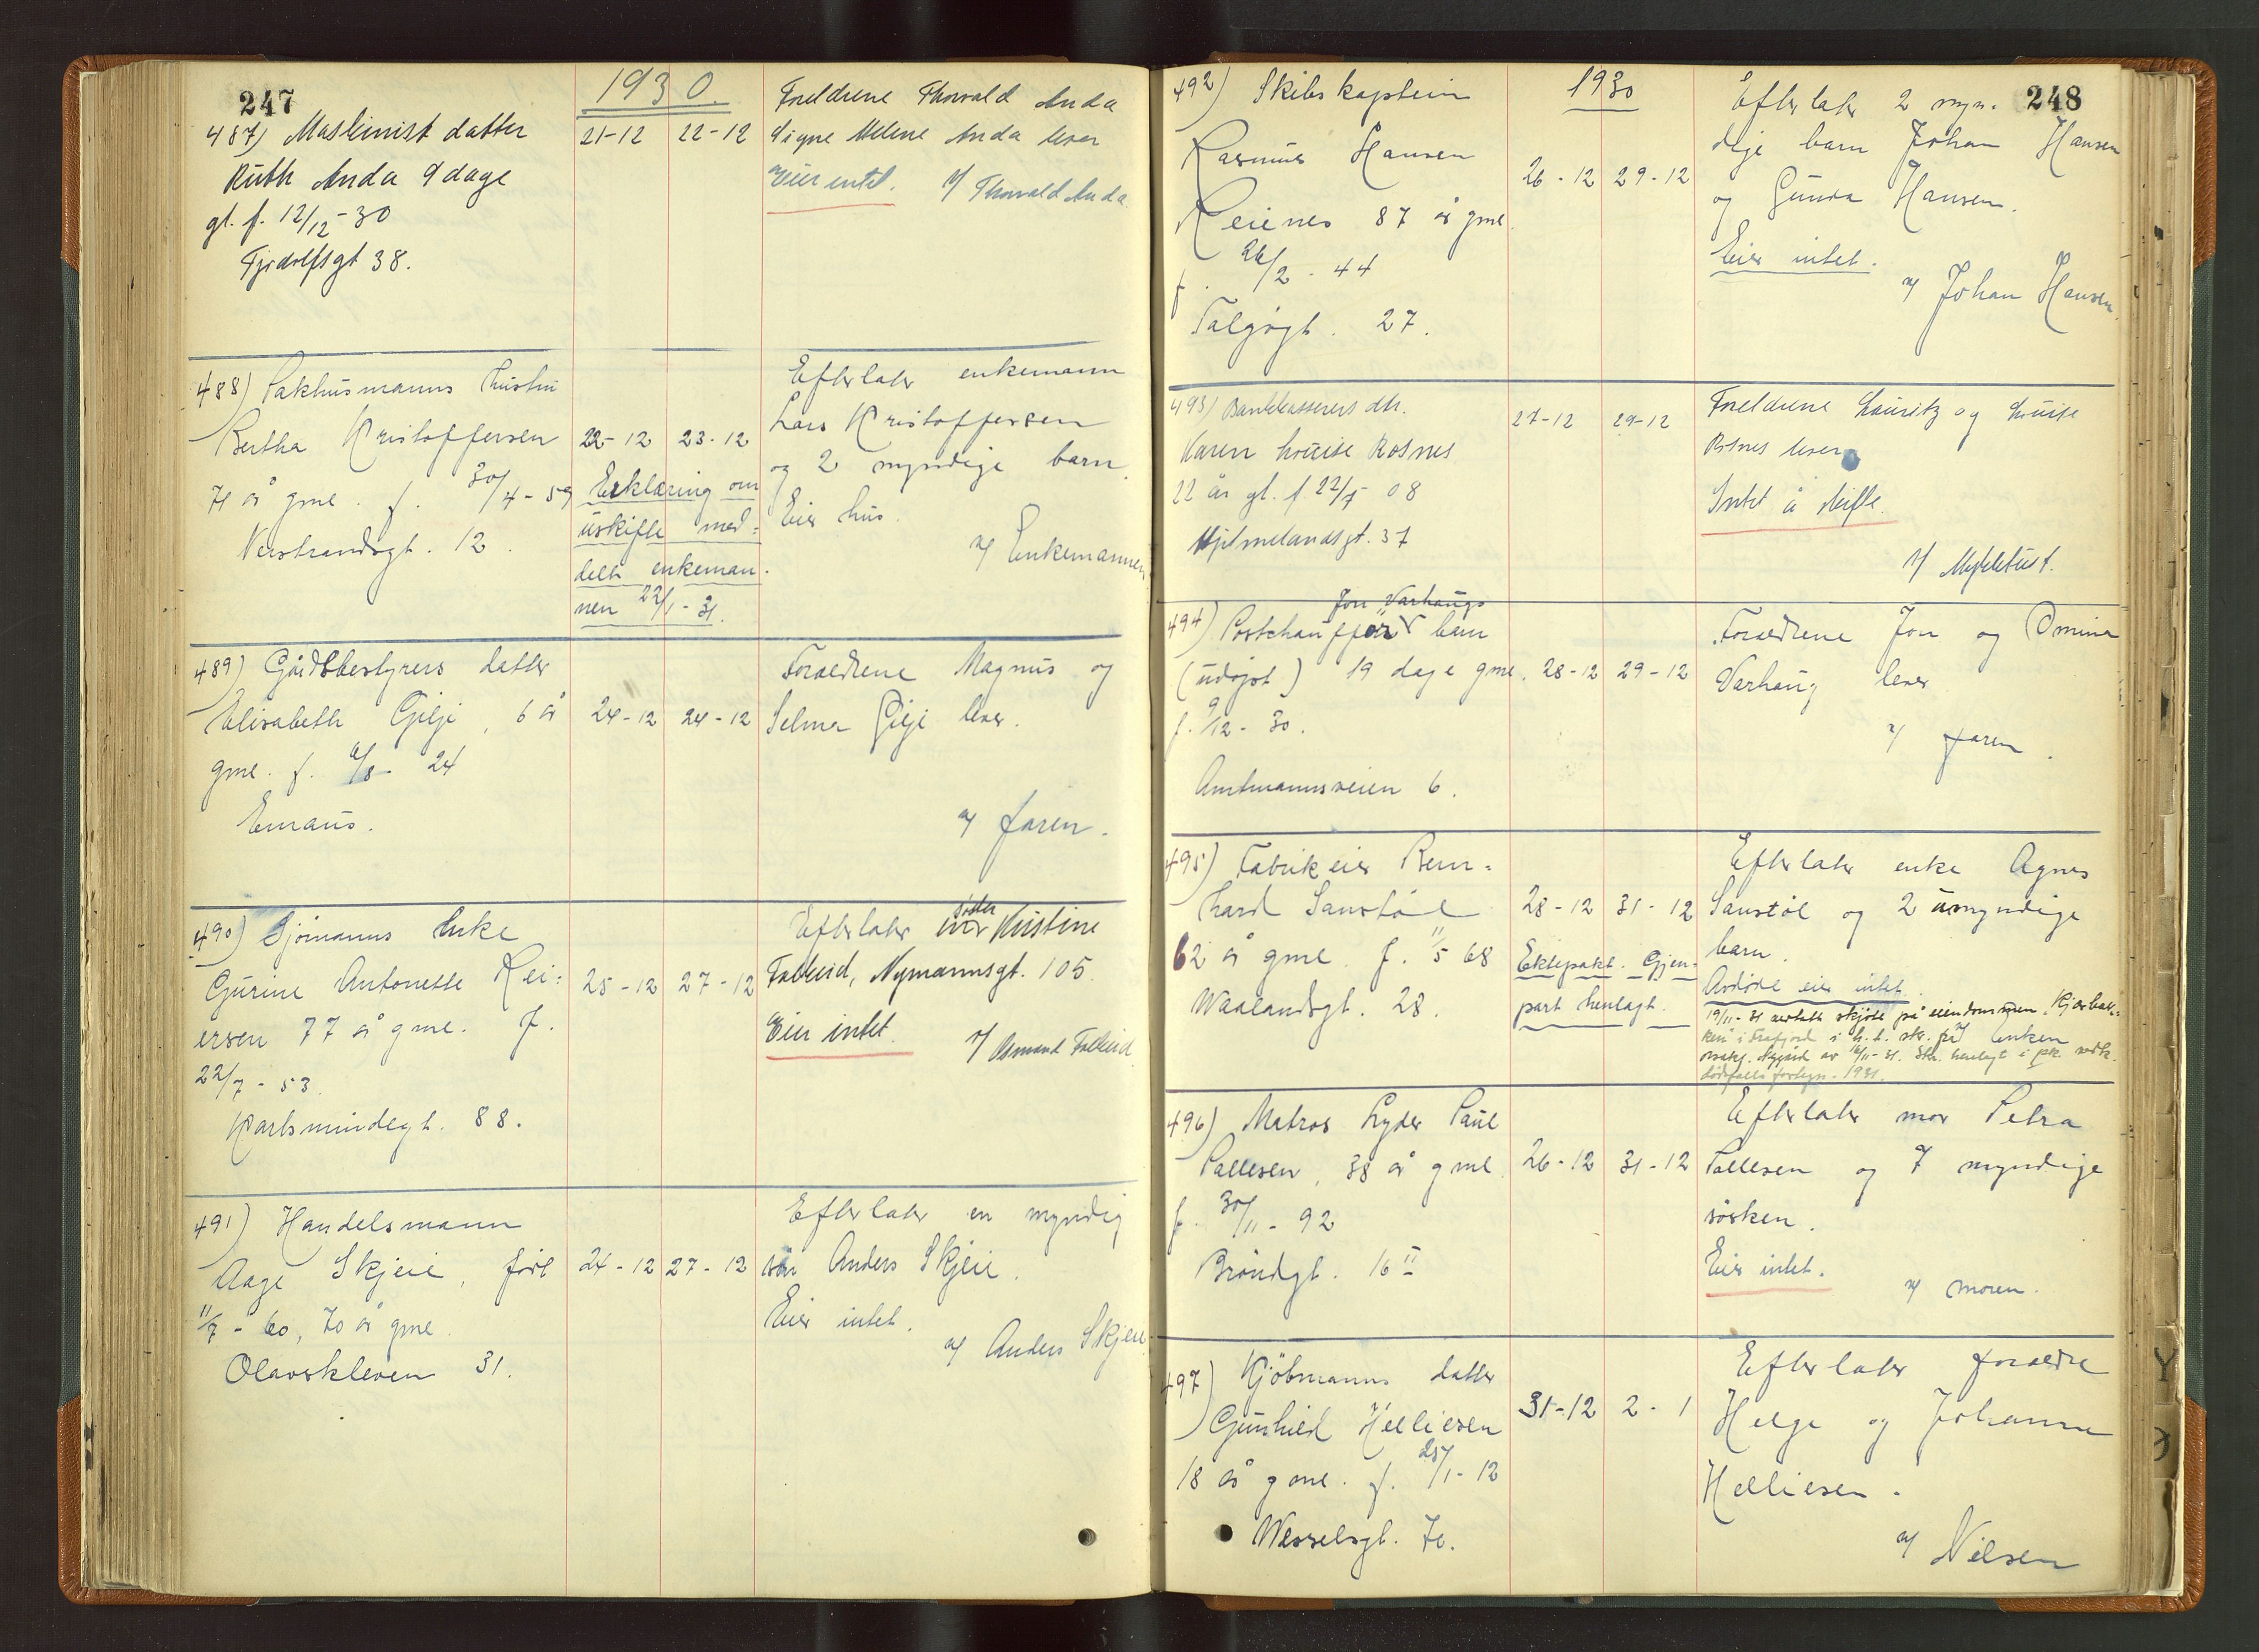 247
1930.
487) Maskinist datter
Ruth Anda 9 dage
gl. f. 12/12-30
Fjordolfsgt 38.
21-12 22-12
Foreldrene Thorvald Anda
Signe Helene Anda lever
Eier intet. v/ Thorvald Anda
488) Pakhusmanns hustru
Bertha Kristoffersen
71 år gml. f. 30/4-59
Verstrandsgt. 12.
22-12 23-12
Erklæring om
uskifte med-
delt enkeman-
nen 22/1-31.
Efterlater enkemann
Lars Kristoffersen
og 2 myndige barn
Eier hus.
v/ Enkemannen
489) Gårdsbestyrers datter
Elisabeth Gilje, 6 år
gml. f. 6/8-24
Emaus.
24-12 24-12
Foreldrene Magnus og
Selma Gilje lever.
v/ faren.
490) Sjømanns Enke
Gurine Antonette Rei-
ersen 77 år gml. f.
22/7-53.
Karlsmindegt. 88.
25-12 27-12
søster
Efterlater Kristine
Falkeid, Nymannsgt. 105.
Eier intet.
v/ Osmund Falkeid
491) Handelsmann
Aage Skjeie, født
11/7-60, 70 år gml.
Olavskleven 31.
24-12 27-12
Efterlater en myndig
søn Anders Skjeie.
Eier intet.
v/ Anders Skjeie
248
1930
492) Skibskaptein
Rasmus Hansen
Reienes 87 år gml.
f. 26/2-44
Talgøgt. 27.
26-12 29-12
Efterlater 2 myn-
dige barn Johan Hansen
og Gunda Hansen.
Eier intet.
v/ Johan Hansen.
493) Bankkasserers dtr.
Karen Louise Rosnes
22 år gl. f 22/5 08
Hjelmelandsgt. 37
27-12 29-12
Foreldrene Lauritz og Louise
Rosnes lever
Intet å skifte.
v/ Mykletust.
Jon Varhaugs
494) Postchauffør barn
(udøpt) 19 dage gml.
f. 9/12-30.
Amtmannsveien 6.
28-12 29-12
Foreldrene Jon og Omine
Varhaug lever
v/ faren.
495) Fabrikeier Rein-
hard Sanstøl
62 år gml. f. 11/5 68
Waalandsgt. 28.
28-12 31-12
Ektepakt. Gjen-
part henlagt.
Efterlater enke Agnes
Sanstøl og 2 umyndige
barn.
Avdøde eier intet.
v/ Enken
19/11-31 utstedt skjøte på eiendommen Kjærbak-
ken i Frafjord i h.t. skr. fra
o.r.sakf. Nygård av 16/11-31. Skr. henlagt i pk. vedk.
dødsfalls fortegn. 1931.
496) Matros Lyder Paul
Pallesen, 38 år gml.
f. 30/11-92
Brøndgt. 16 II
26-12 31-12
Efterlater mor Petra
Pallesen og 7 myndige
søsken.
Eier intet.
v/ moren.
497) Kjøbmanns datter
Gunhild Helliesen
18 år gml. f. 25/1-12
Wesselsgt. 70.
31-12 2-1
Efterlater foreldre
Helge og Johanne
Helliesen.
v/ Nilsen